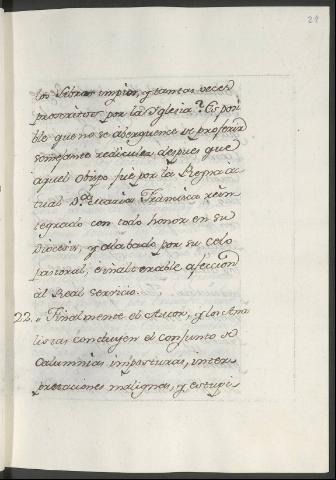 21
los Libros impios, y tantas veces
proscritos por la Yglesia? Es posi
ble que no se aberguence de proferir
semejante rediculez, despues que
aquel Obispo fué por la Reyna ac-
tual D.ª Maria Francisca rein-
tegrado con todo honor en su
Diocesis, y alabado por su celo
pastoral, é inalterable afeccion
al Real servicio.
22. " Finalmente el Autor, y los Ana
listas concluyen el conjunto de
calumnias imposturas, inter-
pretaciones malignas, y estupi-